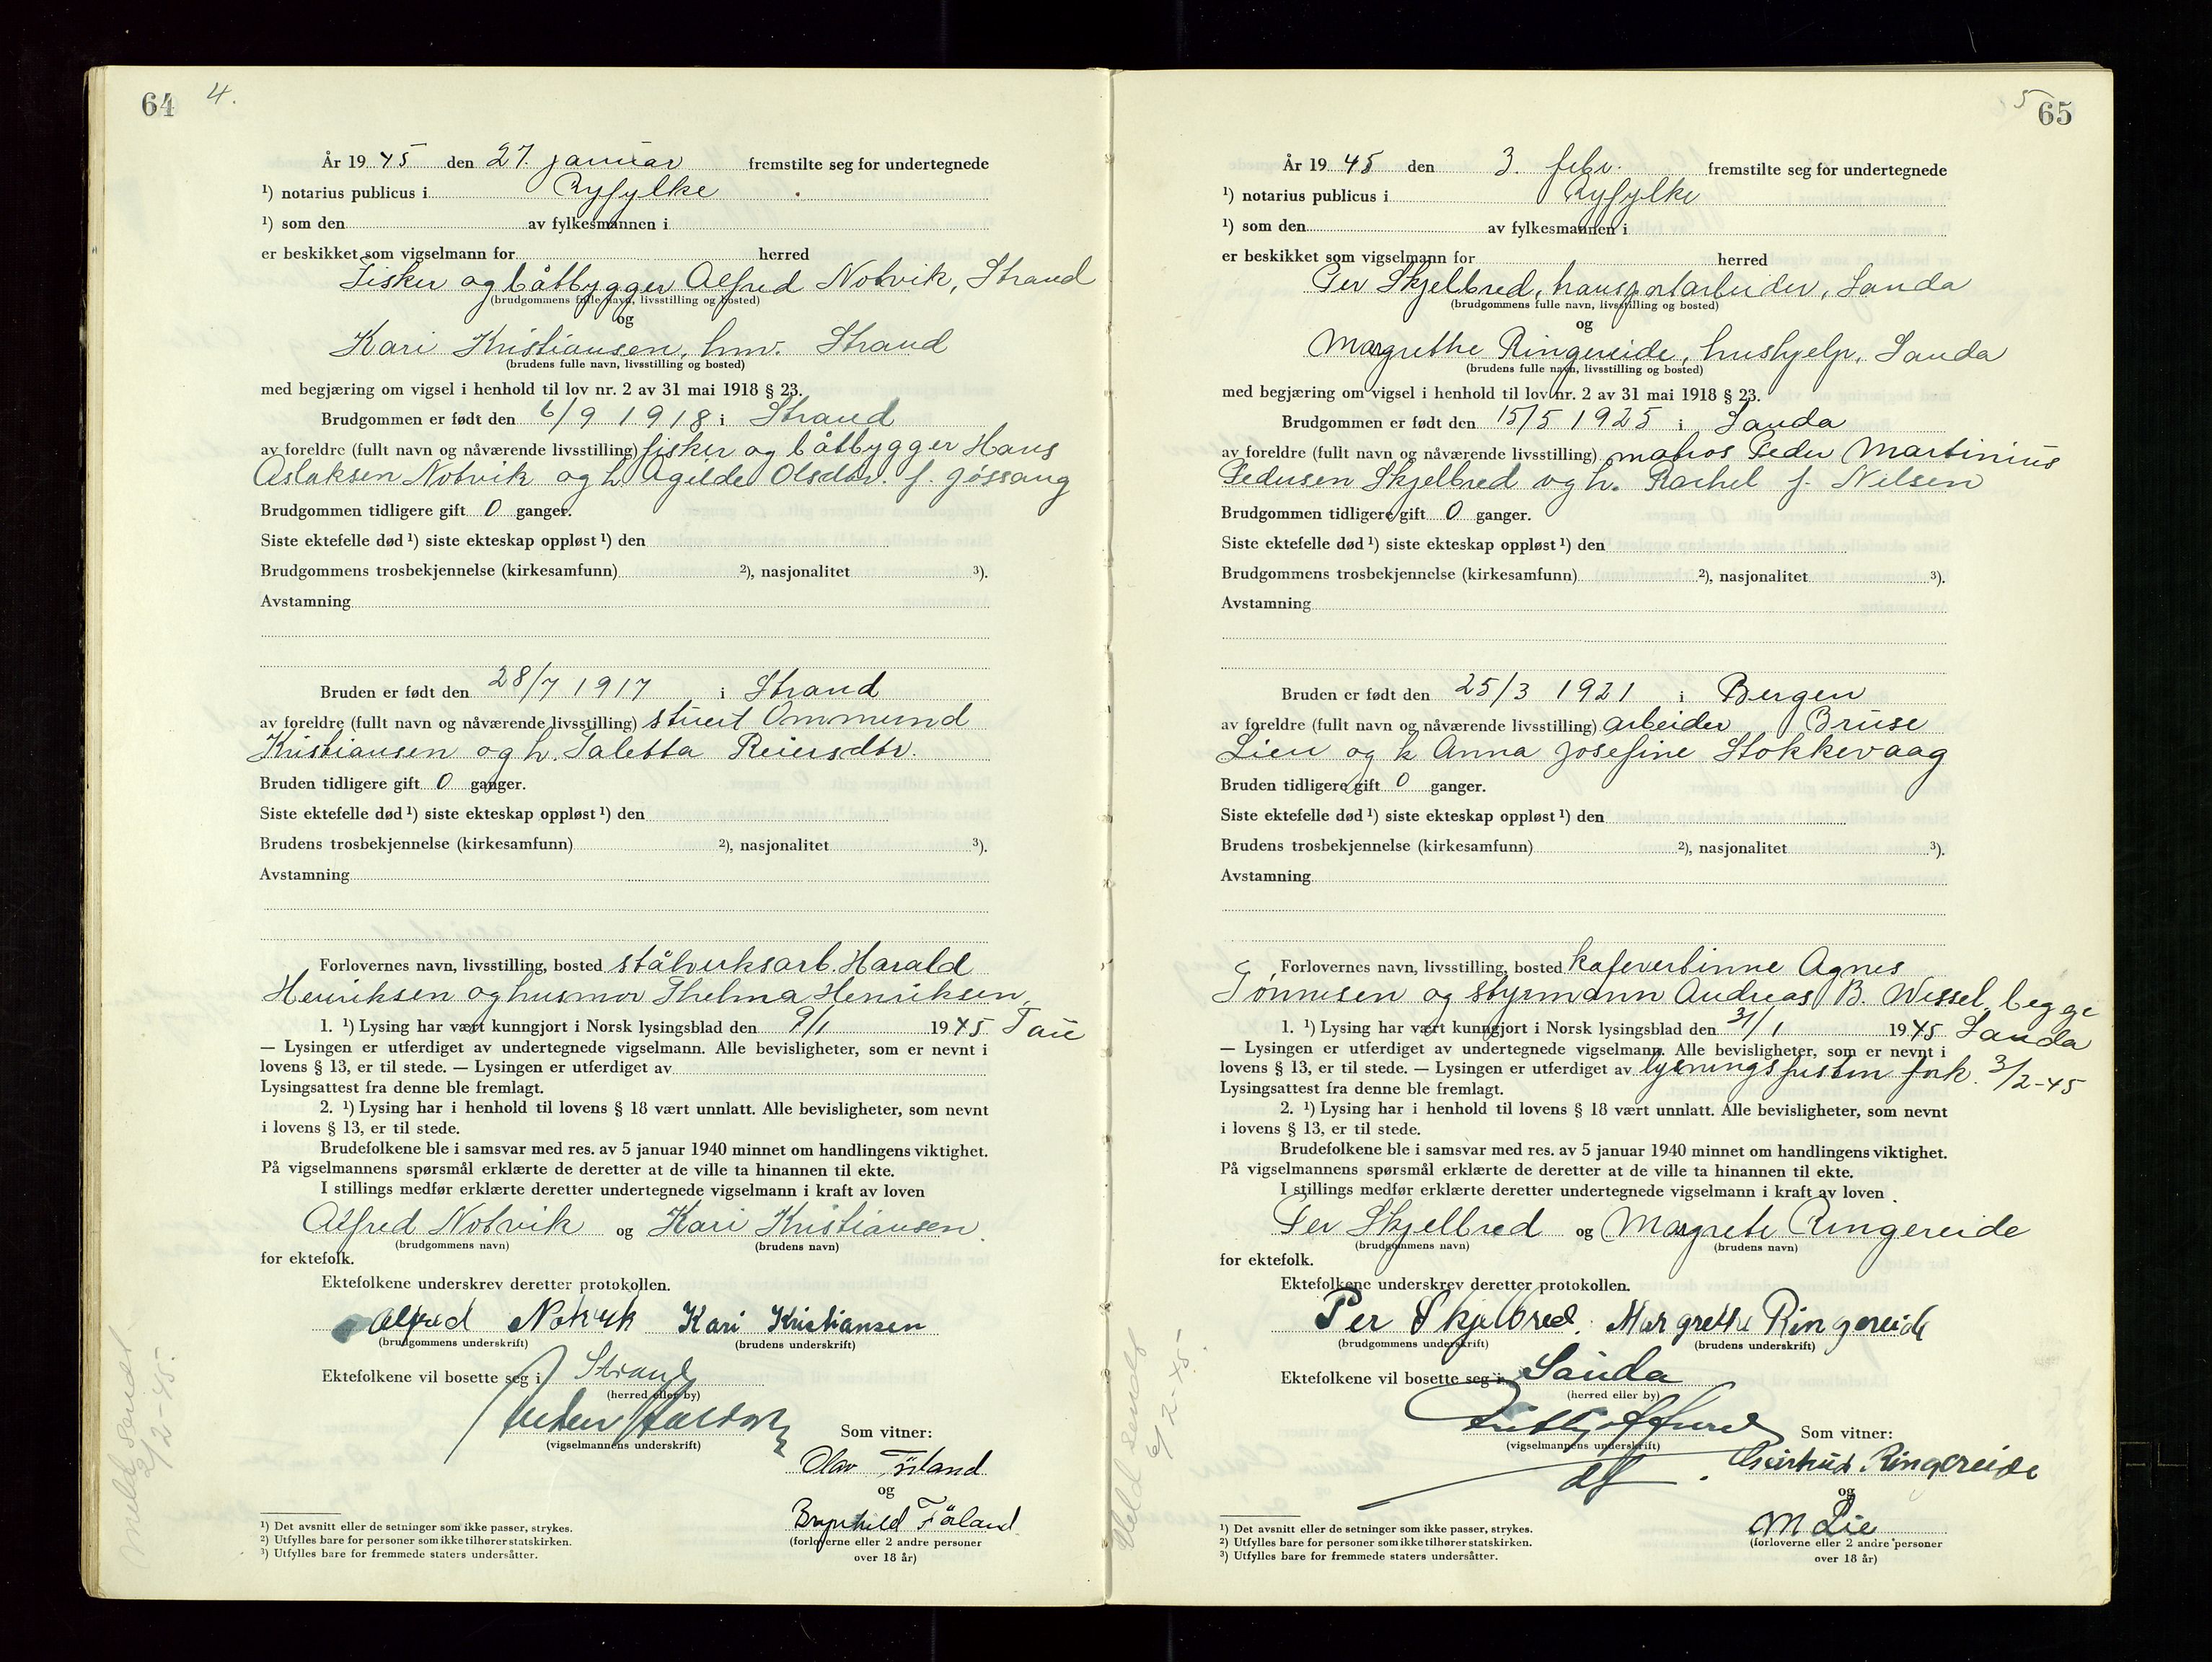 64 4.
År 1945 den 27. januar fremstilte seg for undertegnede
¹) notarius publicus i Ryfylke
¹) som den av fylkesmannen i
er beskikket som vigselmann for herred
Fisker og båtbygger Alfred Notvik, Strand
(brudgommens fulle navn, livsstilling og bosted)
og
Kari Kristiansen, hmv. Strand
(brudens fulle navn, livsstilling og bosted)
med begjæring om vigsel i henhold til lov nr. 2 av 31 mai 1918 § 23.
Brudgommen er født den 6/9 1918 i Strand
av foreldre (fullt navn og nåværende livsstilling) fisker og båtbygger Hans
Aslaksen Notvik og h. Agilde Olsdtr. f. Jøssang
Brudgommen tidligere gift 0 ganger.
Siste ektefelle død ¹) siste ekteskap oppløst ¹) den
Brudgommens trosbekjennelse (kirkesamfunn) ²), nasjonalitet ³).
Avstamning
Bruden er født den 28/7 1917 i Strand
av foreldre (fullt navn og nåværende livsstilling) stuert Ommund
Kristiansen og h. Taletta Reiersdtr.
Bruden tidligere gift 0 ganger.
Siste ektefelle død ¹) siste ekteskap oppløst ¹) den
Brudens trosbekjennelse (kirkesamfunn) ²), nasjonalitet ³).
Avstamning
Forlovernes navn, livsstilling, bosted stålverksarb. Harald
Henriksen og husmor Thelma Henriksen,
1. ¹) Lysing har vært kunngjort i Norsk lysingsblad den 9/1 1945 Tau
— Lysingen er utferdiget av undertegnede vigselmann. Alle bevisligheter, som er nevnt i
lovens § 13, er til stede. — Lysingen er utferdiget av
Lysingsattest fra denne ble fremlagt.
2. ¹) Lysing har i henhold til lovens § 18 vært unnlatt. Alle bevisligheter, som nevnt
i lovens § 13, er til stede.
Brudefolkene ble i samsvar med res. av 5 januar 1940 minnet om handlingens viktighet.
På vigselmannens spørsmål erklærte de deretter at de ville ta hinannen til ekte.
I stillings medfør erklærte deretter undertegnede vigselmann i kraft av loven
Alfred Notvik og Kari Kristiansen.
(brudgommens navn) (brudens navn)
for ektefolk.
Ektefolkene underskrev deretter protokollen.
Alfred Notvik Kari Kristiansen
(brudgommens underskrift) (brudens underskrift)
Ektefolkene vil bosette seg i Strand
(herred eller by)
(vigselmannens underskrift) Som vitner:
Olav
og
Brynhild
(forloverne eller 2 andre personer
over 18 år)
¹) Det avsnitt eller de setninger som ikke passer, strykes.
²) Utfylles bare for personer som ikke tilhører statskirken.
³) Utfylles bare for fremmede staters undersåtter.
Meld sendt
2/2-45.
5 65
År 1945 den 3. febr. fremstilte seg for undertegnede
¹) notarius publicus i Ryfylke
¹) som den av fylkesmannen i
er beskikket som vigselmann for herred
Per Skjelbred, transportarbeider, Sauda
(brudgommens fulle navn, livsstilling og bosted)
og
Margrethe Ringereide, hushjelp, Sauda
(brudens fulle navn, livsstilling og bosted)
med begjæring om vigsel i henhold til lov nr. 2 av 31 mai 1918 § 23.
Brudgommen er født den 15/5 1925 i Sauda
av foreldre (fullt navn og nåværende livsstilling) matros Peder Martinius
Pedersen Skjelbred og h. Rachel f. Nilsen
Brudgommen tidligere gift 0 ganger.
Siste ektefelle død ¹) siste ekteskap oppløst ¹) den
Brudgommens trosbekjennelse (kirkesamfunn) ²), nasjonalitet ³).
Avstamning
Bruden er født den 25/3 1921 i Bergen
av foreldre (fullt navn og nåværende livsstilling) arbeider Bruse
Lien og k Anna Josefine Stokkevaag
Bruden tidligere gift 0 ganger.
Siste ektefelle død ¹) siste ekteskap oppløst ¹) den
Brudens trosbekjennelse (kirkesamfunn) ²), nasjonalitet ³).
Avstamning
Forlovernes navn, livsstilling, bosted kafevertinne Agnes
Tønnesen og styrmann Andreas B. Wessel, begge
1. ¹) Lysing har vært kunngjort i Norsk lysingsblad den 3/1 1945 Sauda
— Lysingen er utferdiget av undertegnede vigselmann. Alle bevisligheter, som er nevnt i
lovens § 13, er til stede. — Lysingen er utferdiget av lysningsfristen fork. 3/2-45
Lysingsattest fra denne ble fremlagt.
2. ¹) Lysing har i henhold til lovens § 18 vært unnlatt. Alle bevisligheter, som nevnt
i lovens § 13, er til stede.
Brudefolkene ble i samsvar med res. av 5 januar 1940 minnet om handlingens viktighet.
På vigselmannens spørsmål erklærte de deretter at de ville ta hinannen til ekte.
I stillings medfør erklærte deretter undertegnede vigselmann i kraft av loven
Per Skjelbred og Margrete Ringereide
(brudgommens navn) (brudens navn)
for ektefolk.
Ektefolkene underskrev deretter protokollen.
Per Skjelbred. Margrethe Ringereide
(brudgommens underskrift) (brudens underskrift)
Ektefolkene vil bosette seg i Sauda
(herred eller by)
(vigselmannens underskrift) Som vitner:
Ringereide
og
M Lie
(forloverne eller 2 andre personer
over 18 år)
¹) Det avsnitt eller de setninger som ikke passer, strykes.
²) Utfylles bare for personer som ikke tilhører statskirken.
³) Utfylles bare for fremmede staters undersåtter.
Meld sendt
6/2-45.